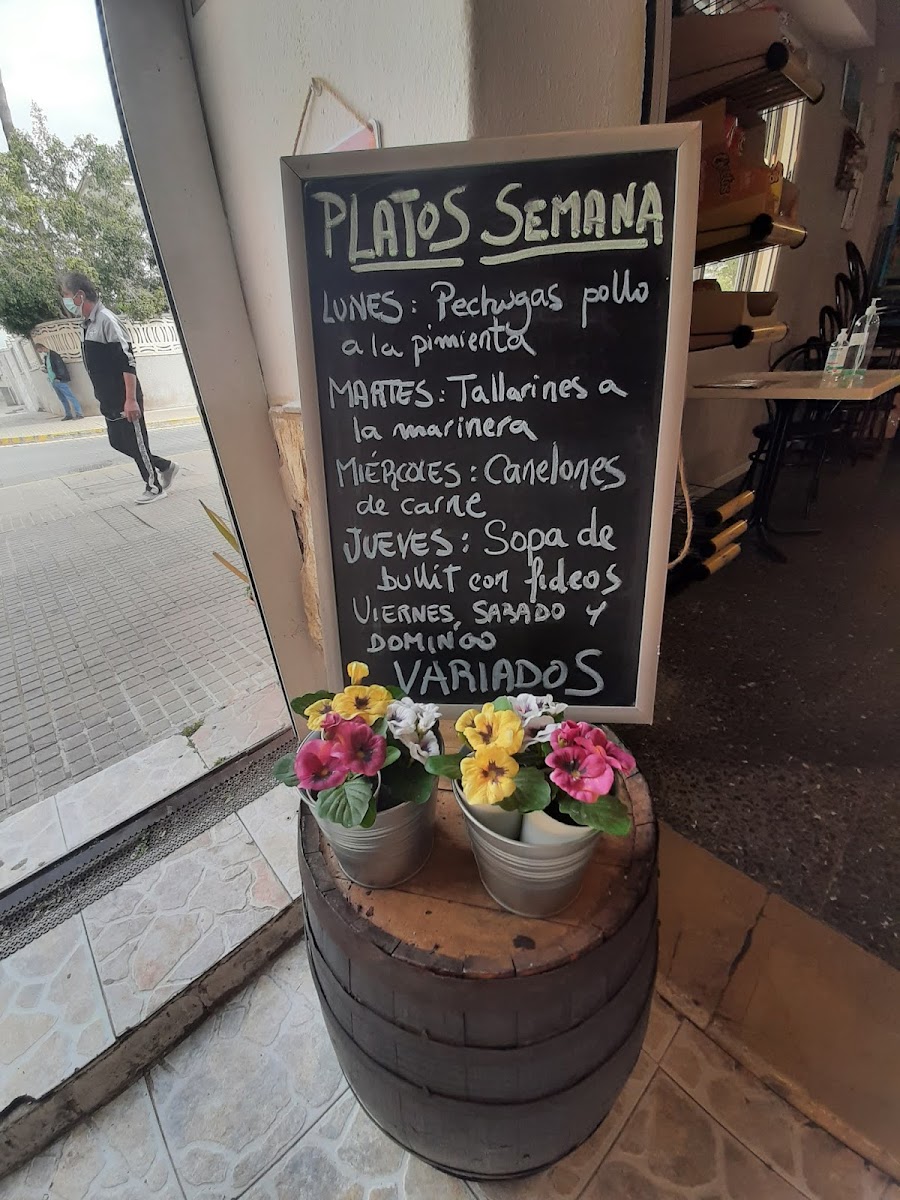 PLATOS SEMANA
LUNES: Pechugas pollo
a la pimienta
MARTES: Tallarines a
la marinera
MIÉRCOLES: Canelones
de carne
JUEVES: Sopa de
bullit con fideos
VIERNES, SABADO Y
DOMINGO
VARIADOS